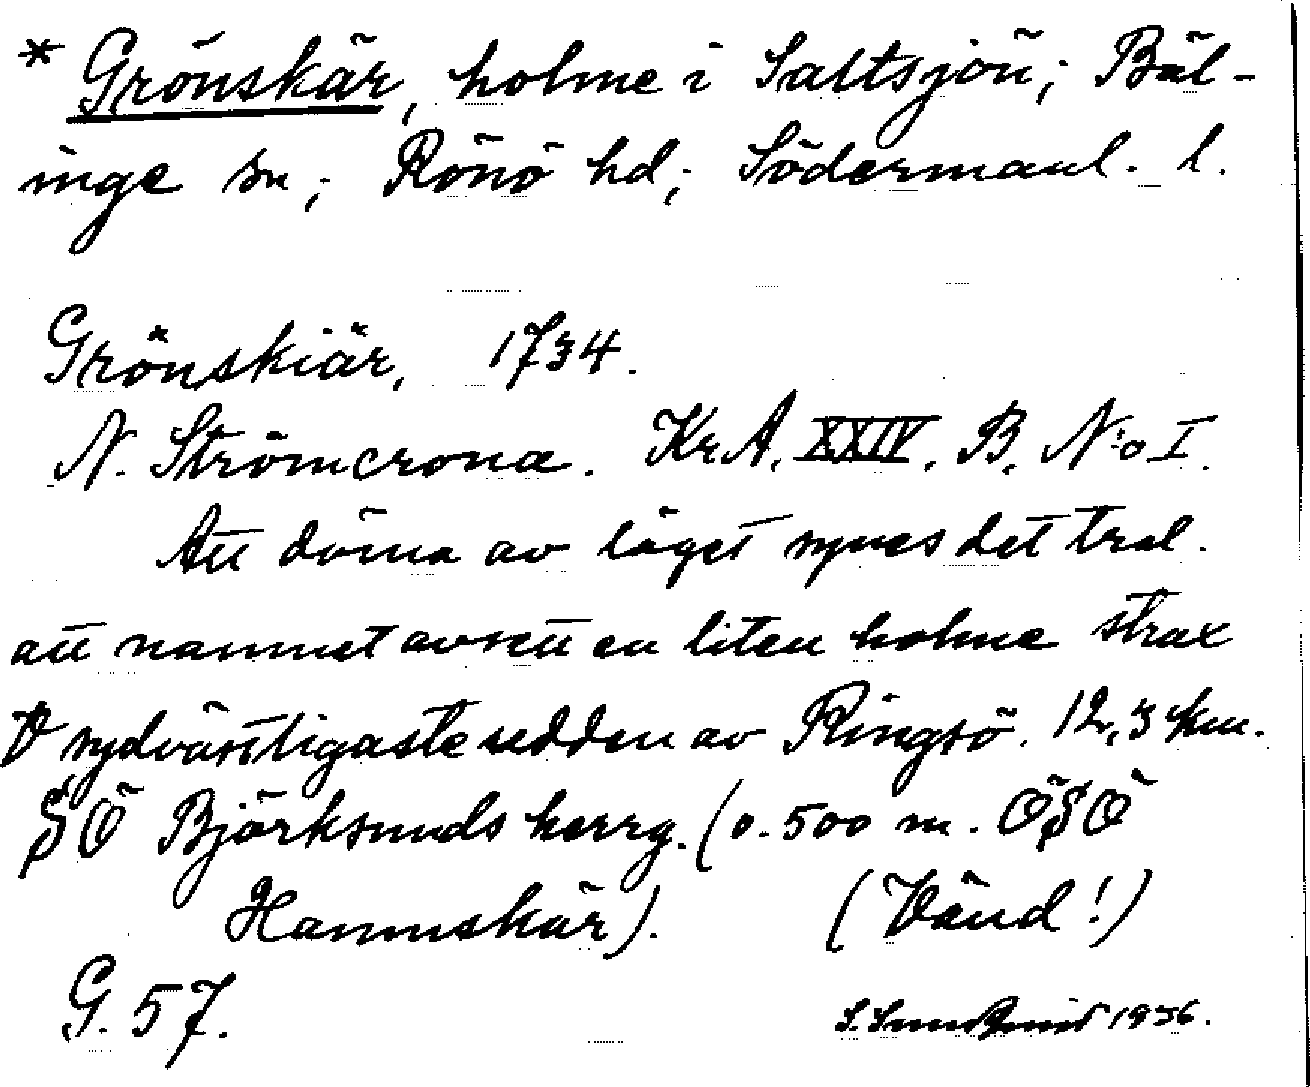 * Grönskär, holme i Saltsjön; Bäl-
inge sn; Rönö hd; Södermanl. l.
Grönskiär, 1734.
N. Strömcrona. KrA. XXIV. B. N:o I.
Att döma av läget synes det trol.
att namnet avsett en liten holme strax
V sydvästligaste udden av Ringsö. 12,3 km.
SÖ Björksunds herrg. (o. 500 m. ÖSÖ
Hamnskär). (Vänd!)
G. 57.
1936.